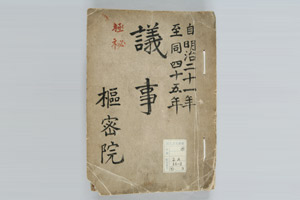 自明治二十一年
至同四十五年
極秘
議事
樞密院